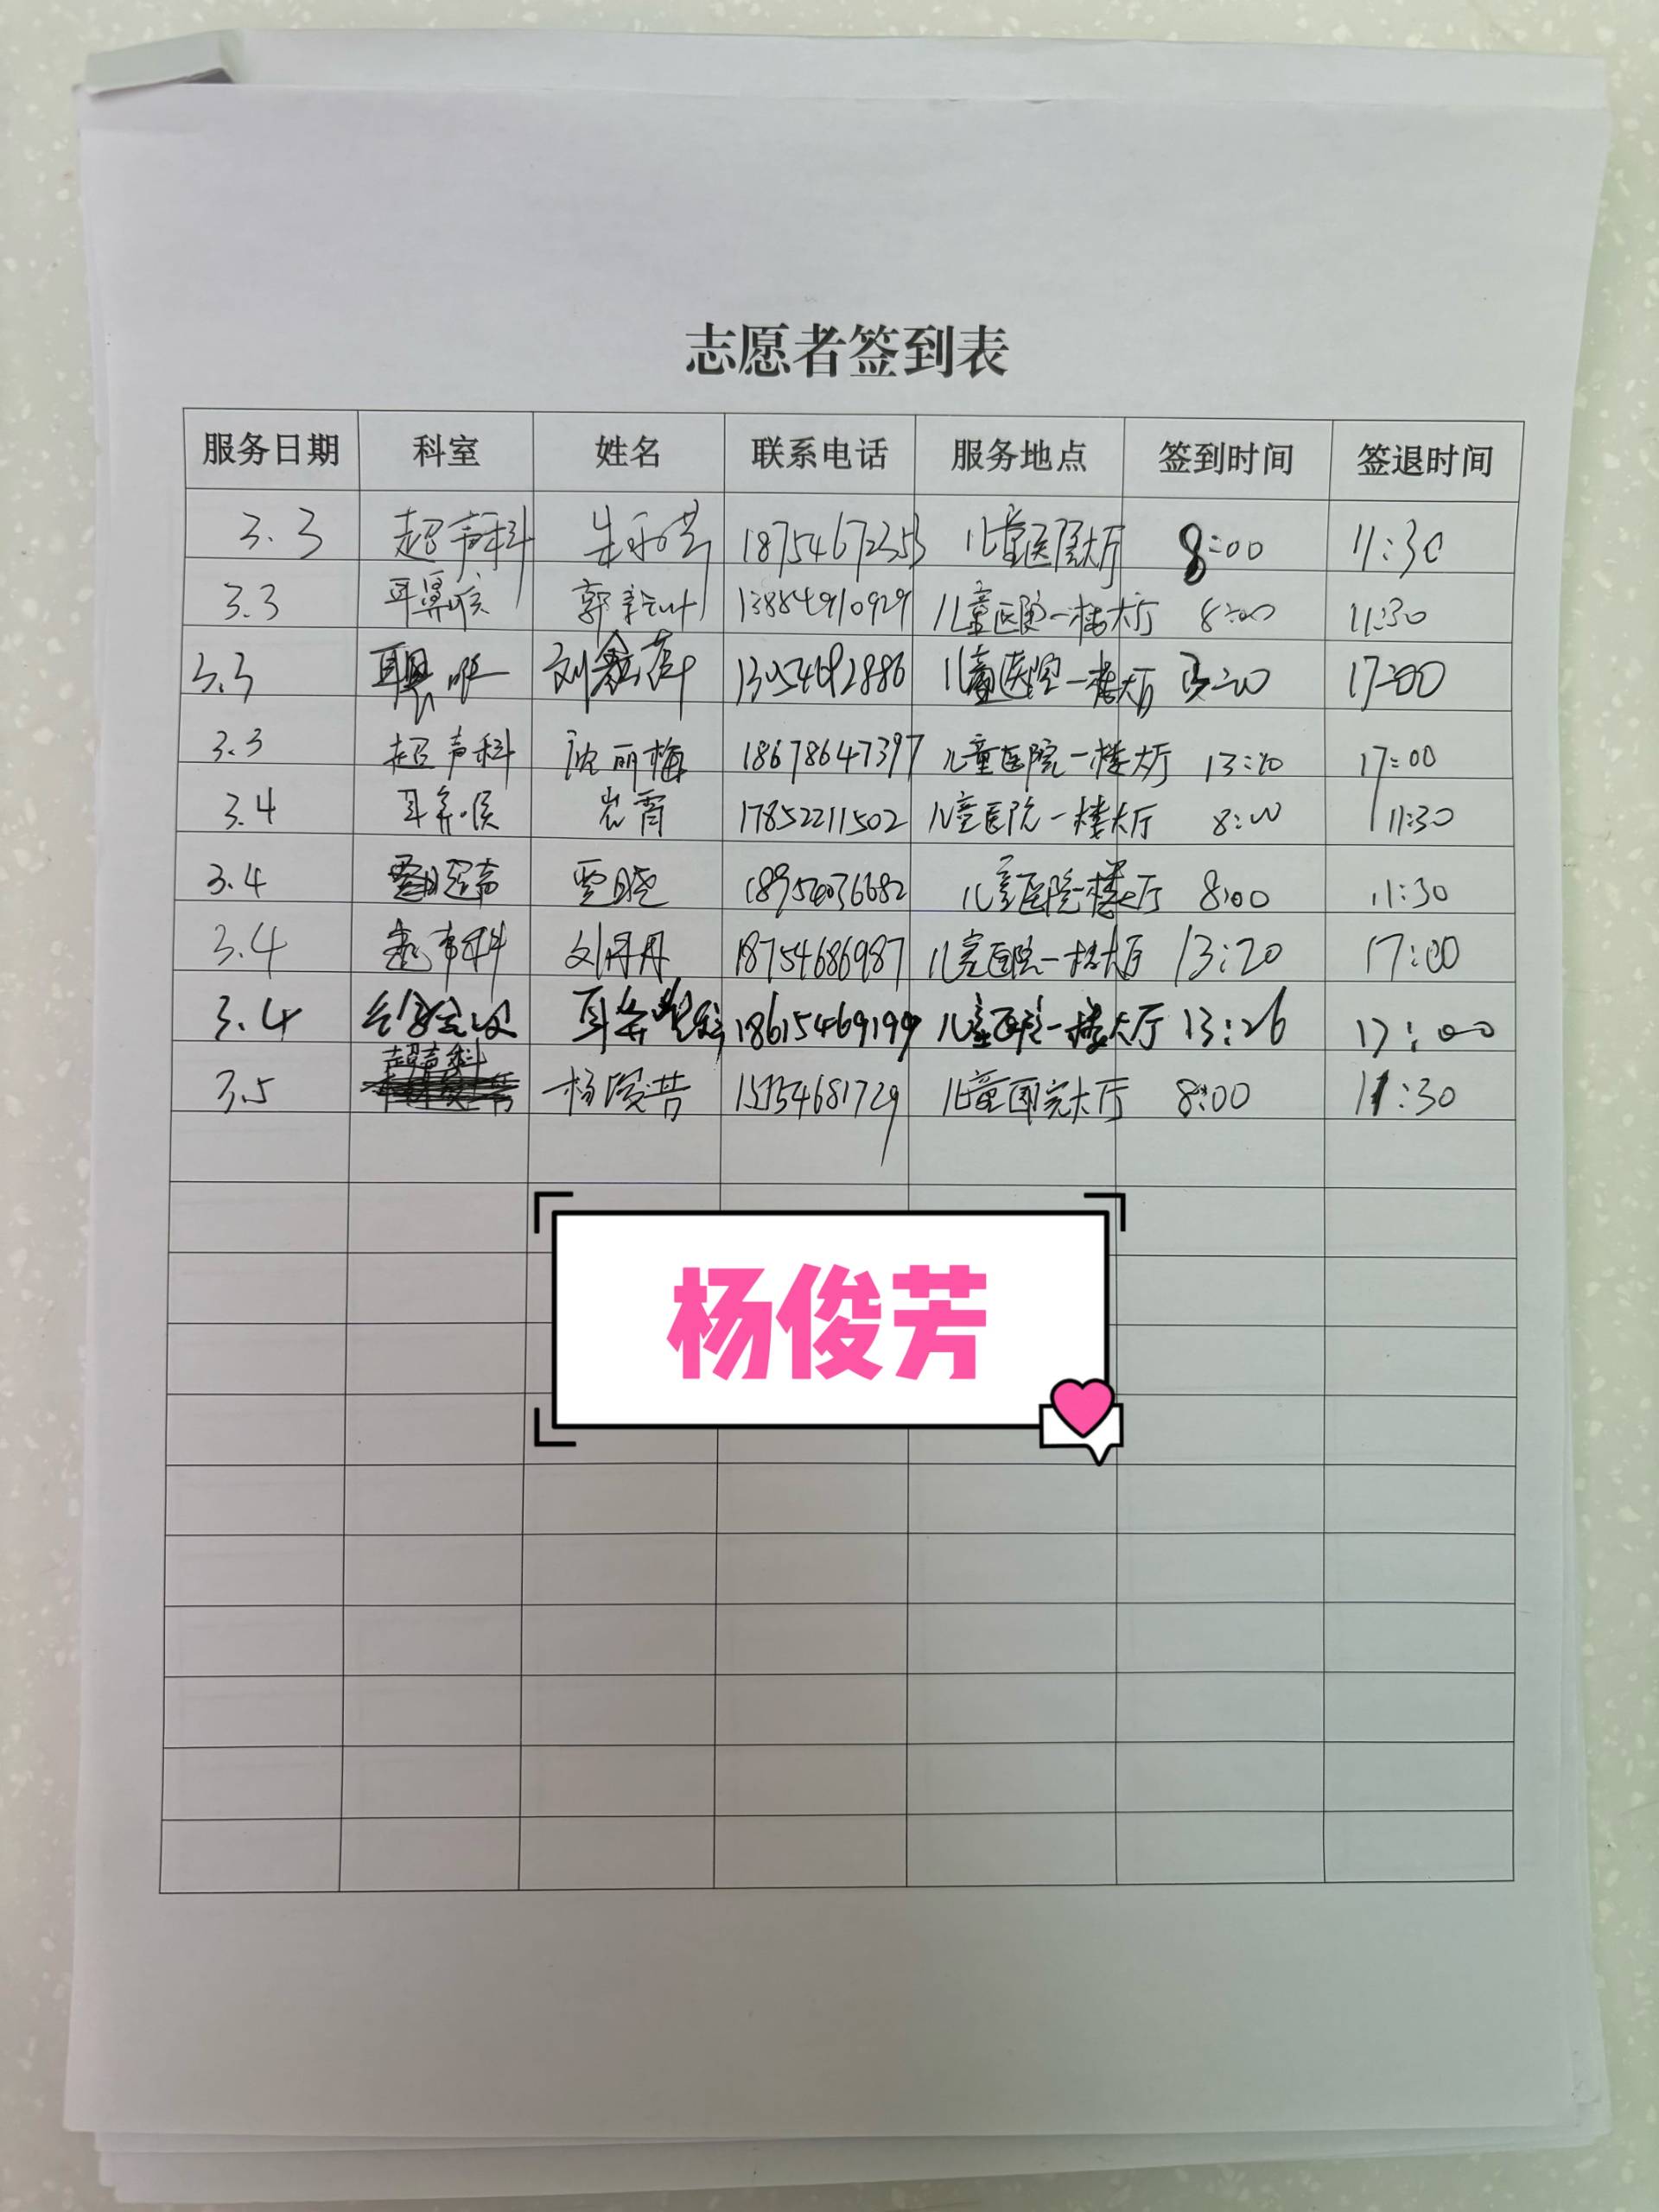 志愿者签到表
服务日期 科室 姓名 联系电话 服务地点 签到时间 签退时间
3.3 超声科 18754672353 儿童医院大厅 8:00 11:30
3.3 耳鼻喉 郭 13884910929 儿童医院一楼大厅 8:00 11:30
3.3 刘 儿童医院一楼大厅 17:00
3.3 超声科 沈丽梅 18678647397 儿童医院一楼大厅 13:20 17:00
3.4 耳鼻喉 霄 17852211502 儿童医院一楼大厅 8:00 11:30
3.4 超声 贾晓 18954036682 儿童医院一楼大厅 8:00 11:30
3.4 超声科 刘丹丹 18754686987 儿童医院一楼大厅 13:20 17:00
3.4 耳鼻喉 18615469199 儿童医院一楼大厅 13:26 17:00
超声科
3.5 杨俊芳 15154681729 儿童医院大厅 8:00 11:30
杨俊芳